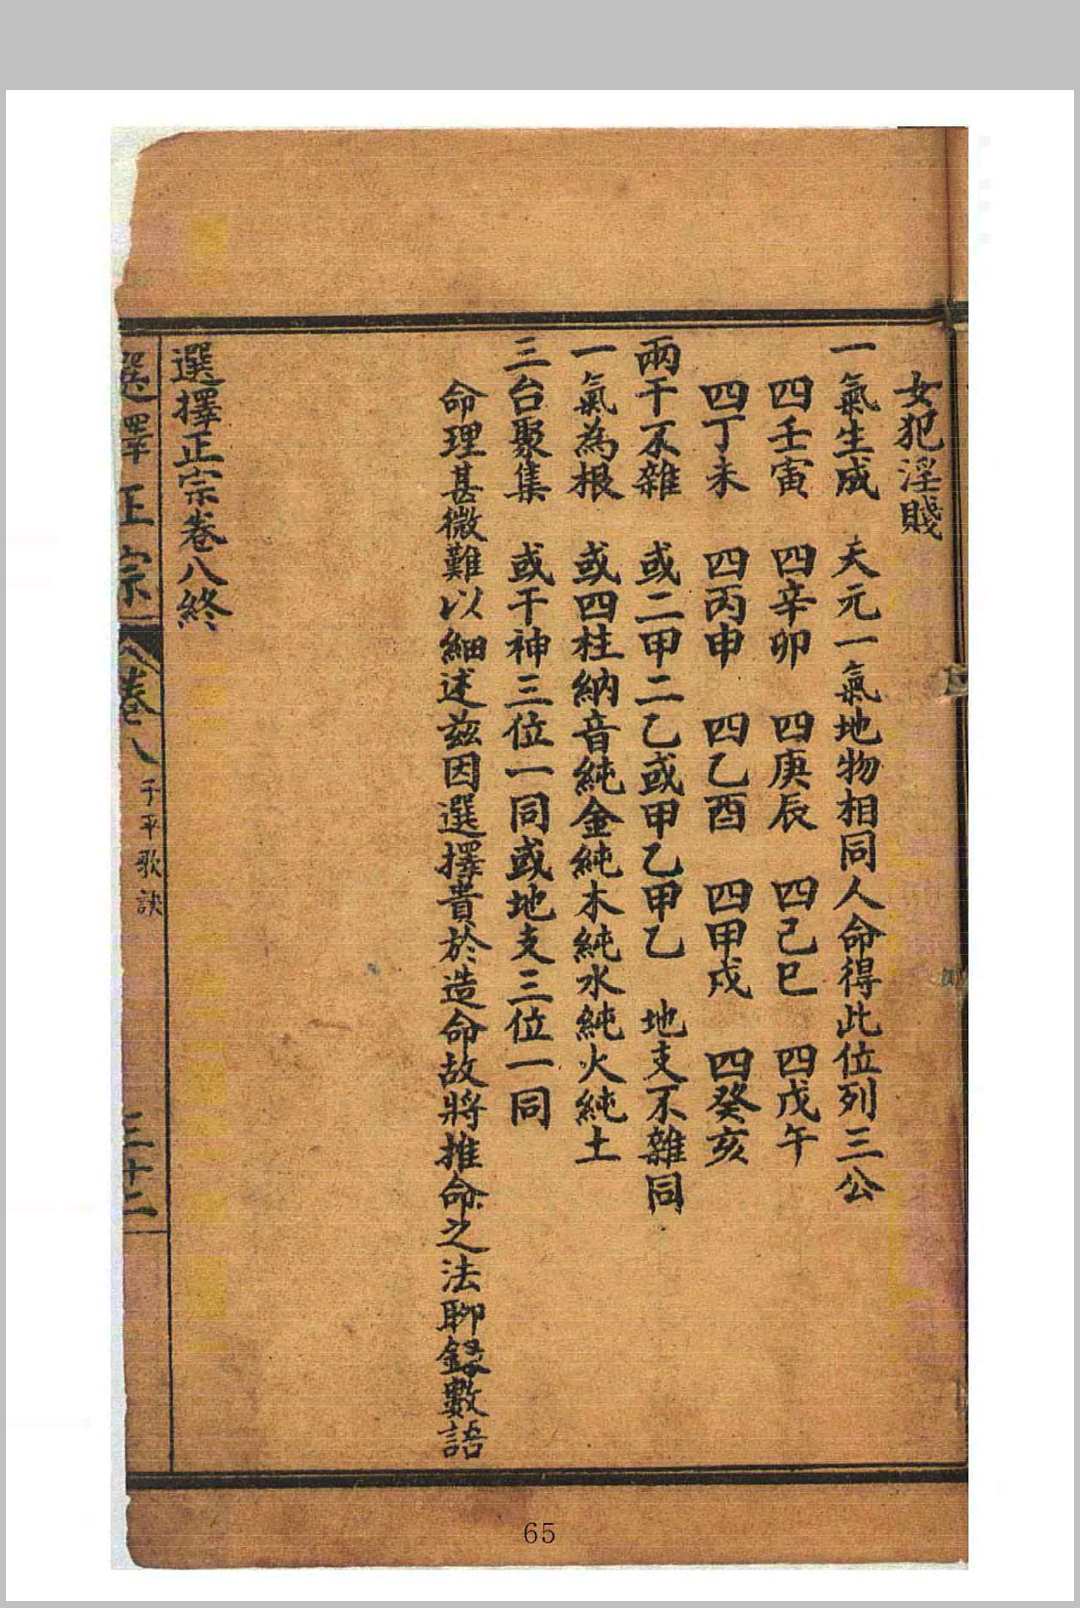 女犯淫賤
一氣生成　天元一氣地物相同人命得此位列三公
四壬寅　四辛卯　四庚辰　四己巳　四戊午
四丁未　四丙申　四乙酉　四甲戌　四癸亥
兩干不雜　或二甲二乙或甲乙甲乙　地支不雜同
一氣為根　或四柱納音純金純木純水純火純土
三台聚集　或干神三位一同或地支三位一同
命理甚微難以細述茲因選擇貴於造命故將推命之法聊錄數語
選擇正宗卷八終
選擇正宗　卷八　子平歌訣　三十二
65